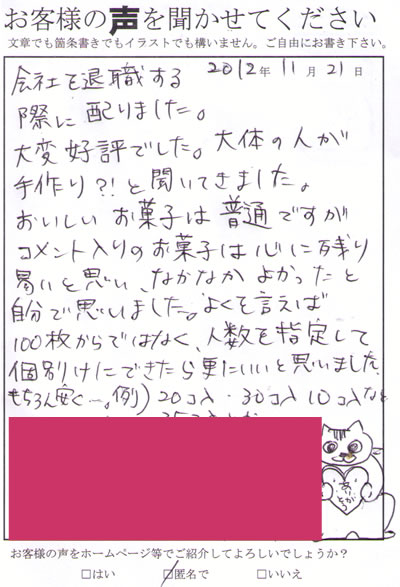 お客様の声を聞かせてください
文章でも箇条書きでもイラストでも構いません。ご自由にお書き下さい。
2012年 11月 21日
会社を退職する
際に配りました。
大変好評でした。大体の人が
手作り?!と聞いてきました。
おいしいお菓子は普通ですが
コメント入りのお菓子は心に残り
易いと思い、なかなかよかったと
自分で思いました。よくを言えば
100枚からではなく、人数を指定して
個別けにできたら更にいいと思いました。
もちろん安く…。例) 20コ入・30コ入 10コ入など
ありがとう
お客様の声をホームページ等でご紹介してよろしいでしょうか?
□はい ☑匿名で □いいえ